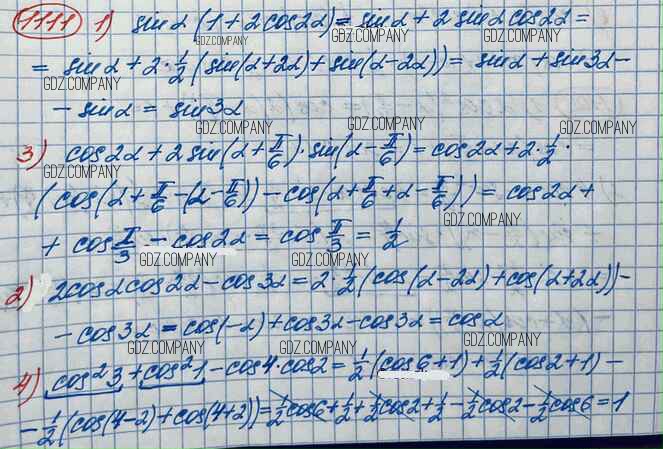 1111 1) sin α (1 + 2 cos 2α) = sin α + 2 sin α cos 2α =
GDZ.COMPANY GDZ.COMPANY GDZ.COMPANY
= sin α + 2 · 1/2 (sin(α+2α) + sin(α-2α)) = sin α + sin 3α -
GDZ.COMPANY GDZ.COMPANY GDZ.COMPANY
- sin α = sin 3α
GDZ.COMPANY GDZ.COMPANY GDZ.COMPANY
3) cos 2α + 2 sin(α + π/6) · sin(α - π/6) = cos 2α + 2 · 1/2 ·
GDZ.COMPANY
(cos(α + π/6 - (α - π/6)) - cos(α + π/6 + α - π/6)) = cos 2α +
GDZ.COMPANY
+ cos π/3 - cos 2α = cos π/3 = 1/2
GDZ.COMPANY GDZ.COMPANY GDZ.COMPANY
2) 2 cos α cos 2α - cos 3α = 2 · 1/2 (cos(α - 2α) + cos(α + 2α)) -
- cos 3α = cos(-α) + cos 3α - cos 3α = cos α
GDZ.COMPANY GDZ.COMPANY GDZ.COMPANY
4) cos² 3 + cos² 1 - cos 4 · cos 2 = 1/2 (cos 6 + 1) + 1/2 (cos 2 + 1) -
GDZ.COMPANY GDZ.COMPANY GDZ.COMPANY
- 1/2 (cos(4-2) + cos(4+2)) = 1/2 cos 6 + 1/2 + 1/2 cos 2 + 1/2 - 1/2 cos 2 - 1/2 cos 6 = 1